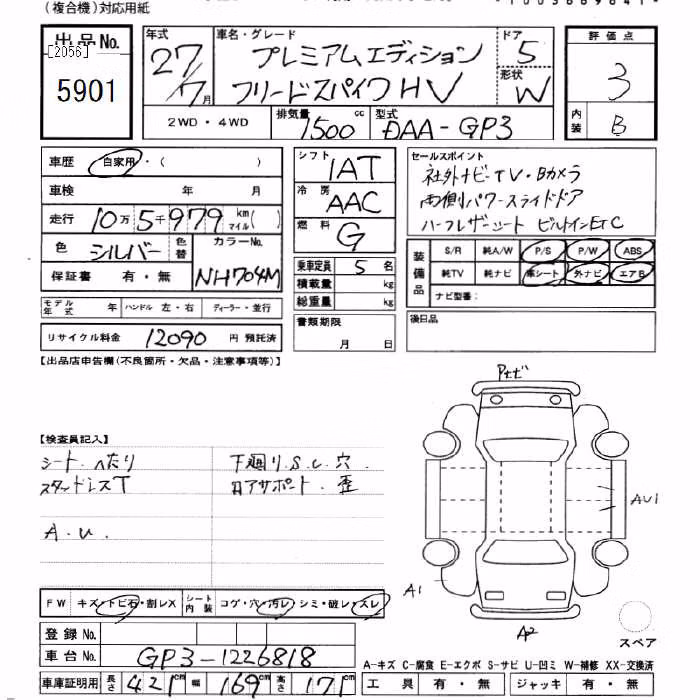 (複合機)対応用紙
出品No. [2056] 5901
年式 27/7月
車名・グレード プレミアムエディション フリードスパイクHV
ドア 5
形状 W
評価点 3
内装 B
2WD・4WD
排気量 1500 cc
型式 DAA-GP3
車歴 自家用・( )
車検 年 月
走行 10万5千979 km マイル( )
色 シルバー 色替 カラーNo. NH704M
保証書 有・無
モデル年式 年 ハンドル 左・右 ディーラー・並行
リサイクル料金 12090 円 預託済
シフト 1AT
冷房 AAC
燃料 G
乗車定員 5 名
積載量 kg
総重量 kg
書類期限 月 日
セールスポイント
社外ナビ-TV・Bカメラ
両側パワースライドドア
ハーフレザーシート ビルトインETC
装備品 S/R 純A/W P/S P/W ABS
純TV 純ナビ 革シート 外ナビ エアB
ナビ型番:
後日品
【出品店申告欄(不良箇所・欠品・注意事項等)】
【検査員記入】
シート.へたり 下廻り.S.C.穴.
スタッドレスT コアサポート.歪
A.U.
Pナビ
AU1
A1
A2
スペア
FW キズ・トビ石・割レX シート内装 コゲ・穴・汚レ・シミ・破レ・スレ
登録No.
車台No. GP3-1226818
車庫証明用 長さ 421 cm 幅 169 cm 高さ 171 cm
A-キズ C-腐食 E-エクボ S-サビ U-凹ミ W-補修 XX-交換済
工具 有・無 ジャッキ 有・無